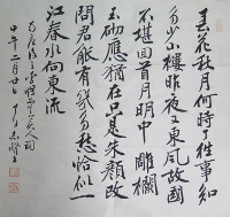 春花秋月何時了往事知
多少小樓昨夜又東風故國
不堪回首月明中 雕欄
玉砌應猶在只是朱顏改
問君能有幾多愁恰似一
江春水向東流
美人詞
甲午二月廿日